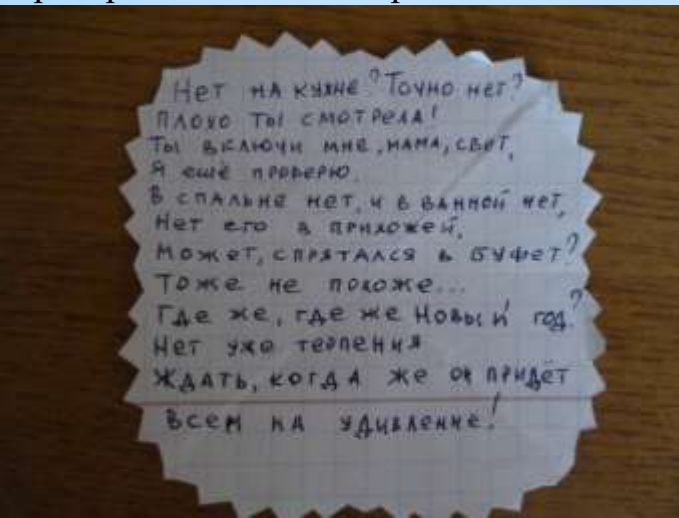 Нет на кухне? Точно нет?
Плохо ты смотрела!
Ты включи мне, мама, свет,
Я ещё проверю.
В спальне нет, и в ванной нет,
Нет его в прихожей,
Может, спрятался в буфет?
Тоже не похоже...
Где же, где же Новый год?
Нет уже терпения
Ждать, когда же он придёт
Всем на удивление!